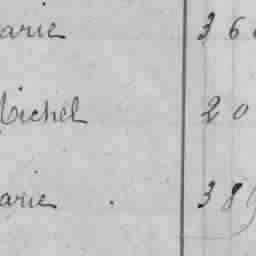 arie 36
Michel 20
arie . 389